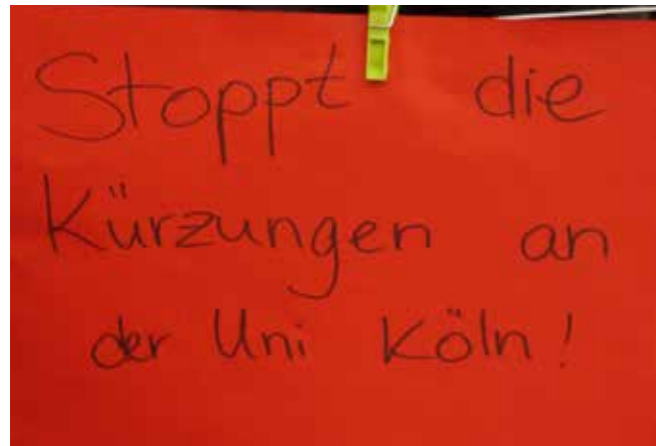 Stoppt die
Kürzungen an
der Uni Köln!